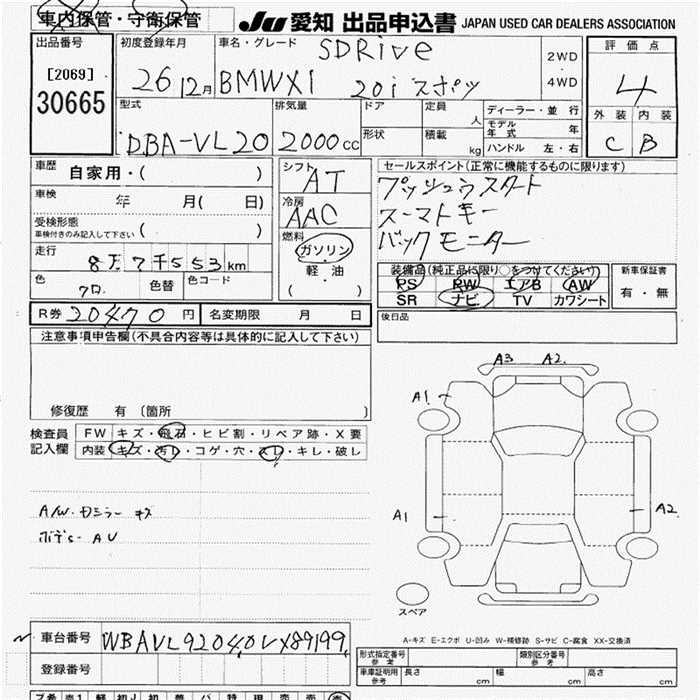 車内保管・守衛保管
JU 愛知 出品申込書 JAPAN USED CAR DEALERS ASSOCIATION
出品番号
[2069]
30665
初度登録年月
26 12月
車名・グレード
SDRive
BMWX1 20i スポーツ
2WD
4WD
評価点
4
外装 内装
C B
型式
DBA-VL20
排気量
2000cc
ドア
形状
定員
人
積載
kg
ディーラー・並行
モデル年式 年
ハンドル 左・右
車歴 自家用・( )
車検 年 月( 日)
受検形態
車検付きのみ記入して下さい ( )
走行 8万7千553km
色 色替 色コード
クロ
シフト
AT
冷房
AAC
燃料
ガソリン
・
軽油
( ・ )
セールスポイント(正常に機能するものに限ります)
プッシュスタート
スーマトキー
バックモニター
装備品(純正品に限り○をつけてください)
PS PW エアB AW
SR ナビ TV カワシート
新車保証書
有・無
後日品
R券 20470円 名変期限 月 日
注意事項申告欄(不具合内容等は具体的に記入して下さい)
修復歴 有 〔箇所 〕
検査員
記入欄
FW キズ・飛石・ヒビ割・リペア跡・X要
内装 キズ・汚レ・コゲ・穴・スレ・キレ・破レ
A/W. ドミラー キズ
ボデー AU
A3 A2
A1
A1
A2
スペア
A-キズ E-エクボ U-凹み W-補修跡 S-サビ C-腐食 XX-交換済
車台番号 WBAVL92040VX89199
登録番号
形式指定番号
参考
類別区分番号
参考
車庫証明用
参考
長さ cm 幅 cm 高さ cm